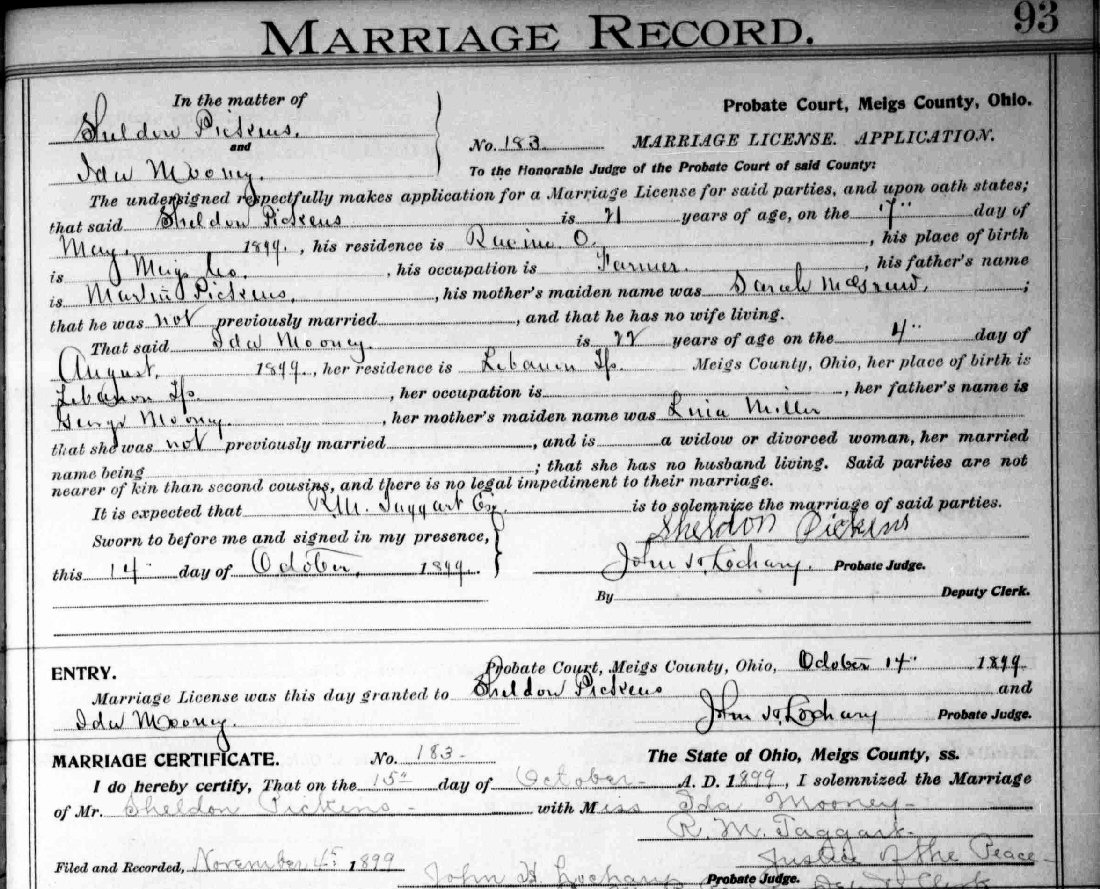 MARRIAGE RECORD.
93
In the matter of
Sheldon Pickens.
and
Ida Mooney.
Probate Court, Meigs County, Ohio.
No. 183 MARRIAGE LICENSE. APPLICATION.
To the Honorable Judge of the Probate Court of said County:
The undersigned respectfully makes application for a Marriage License for said parties, and upon oath states;
that said Sheldon Pickens is 21 years of age, on the 7" day of
May. 1899, his residence is Racine O., his place of birth
is Meigs Co., his occupation is Farmer., his father's name
is Martin Pickens., his mother's maiden name was Sarah ;
that he was not previously married, and that he has no wife living.
That said Ida Mooney. is 22 years of age on the 4" day of
August, 1899, her residence is Lebanon Tp. Meigs County, Ohio, her place of birth is
Lebanon Tp., her occupation is, her father's name is
Mooney., her mother's maiden name was Miller
that she was not previously married, and is a widow or divorced woman, her married
name being ; that she has no husband living. Said parties are not
nearer of kin than second cousins, and there is no legal impediment to their marriage.
It is expected that R.M. Taggart Esq. is to solemnize the marriage of said parties.
Sheldon Pickens
Sworn to before me and signed in my presence,
this 14" day of October, 1899. John H. Lochary. Probate Judge.
By Deputy Clerk.
ENTRY. Probate Court, Meigs County, Ohio, October 14" 1899
Marriage License was this day granted to Sheldon Pickens and
Ida Mooney. John H. Lochary Probate Judge.
MARRIAGE CERTIFICATE. No. 183- The State of Ohio, Meigs County, ss.
I do hereby certify, That on the 15th day of October- A. D. 1899, I solemnized the Marriage
of Mr. Sheldon Pickens- with Miss Ida Mooney-
R. M. Taggart-
Justice of the Peace-
Filed and Recorded, November 4th 1899 John H. Lochary Probate Judge. Clerk